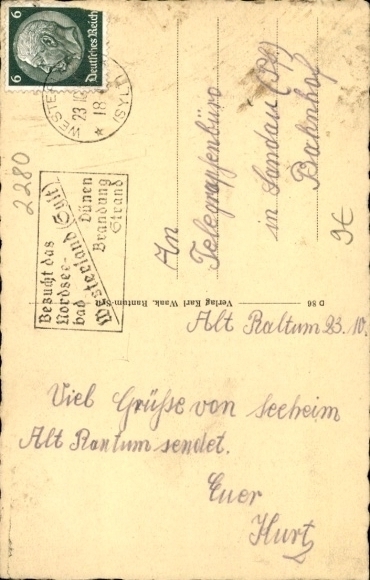 6
6
Deutsches Reich
WESTER
23.10
18
(SYLT)
2280
Besucht das
Nordsee-
bad
Westerland (Sylt)
Dünen
Brandung
Strand
An
Telegrapfenbüro
in Landau (Pf)
Bahnhof
9€
Verlag Karl Wank, Rantum-Sylt
D 86
Alt Raltum 23.10.
Viel Grüße von Seeheim
Alt Rantum sendet.
Euer
Kurt